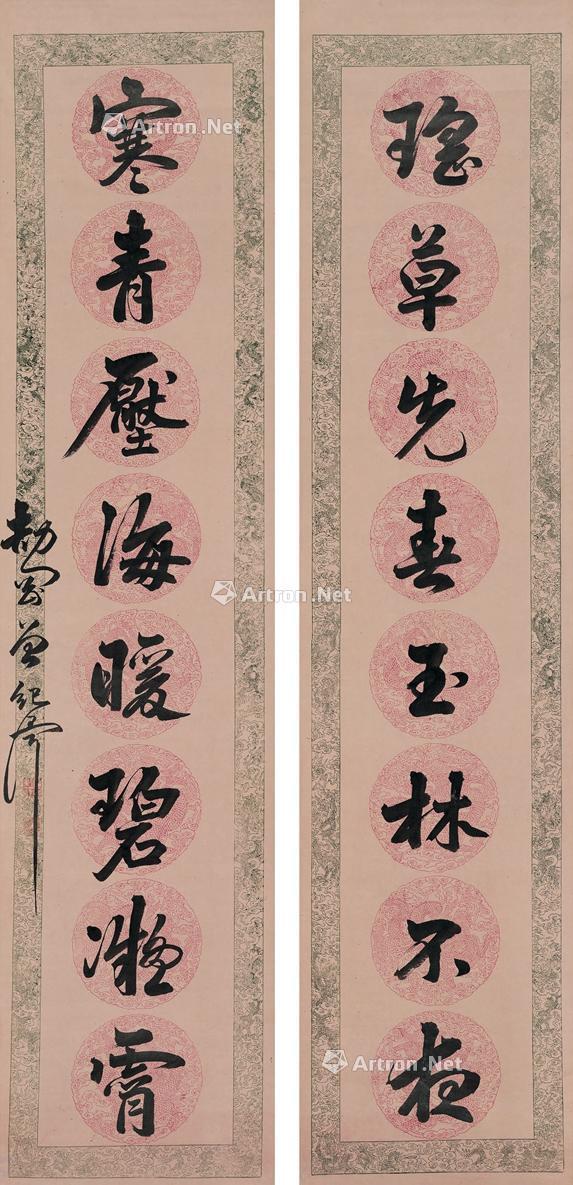 瑤草先春玉林不夜
寒青壓海暖碧凝霄
劼剛曾紀澤
Artron.Net
Artron.Net
Artron.Net
Artron.Net